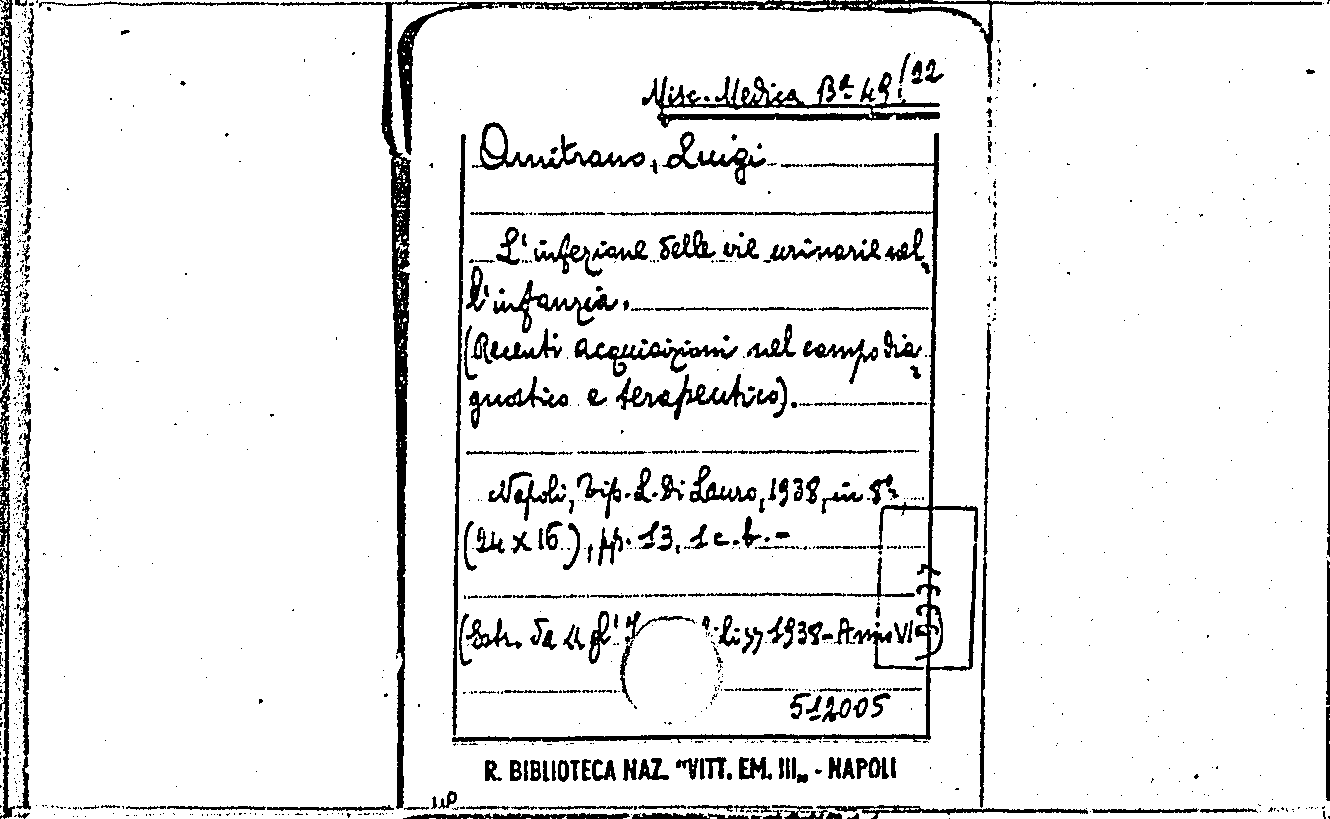 Misc. Medica Bª 49/22
Amitrano, Luigi
L'infezione delle vie urinarie nel-
l'infanzia.
(Recenti acquisizioni nel campo dia-
gnostico e terapeutico).
Napoli, Tip. L. Di Lauro, 1938, in 8º
(24 x 16), pp. 13, 1 c.b.-
(Estr. da "gl' I 1938-Anno VI
512005
R. BIBLIOTECA NAZ. "VITT. EM. III„ - NAPOLI